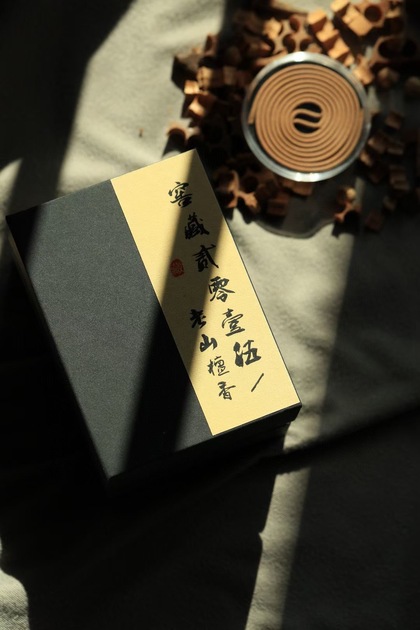 窖藏貳零壹伍
老山檀香